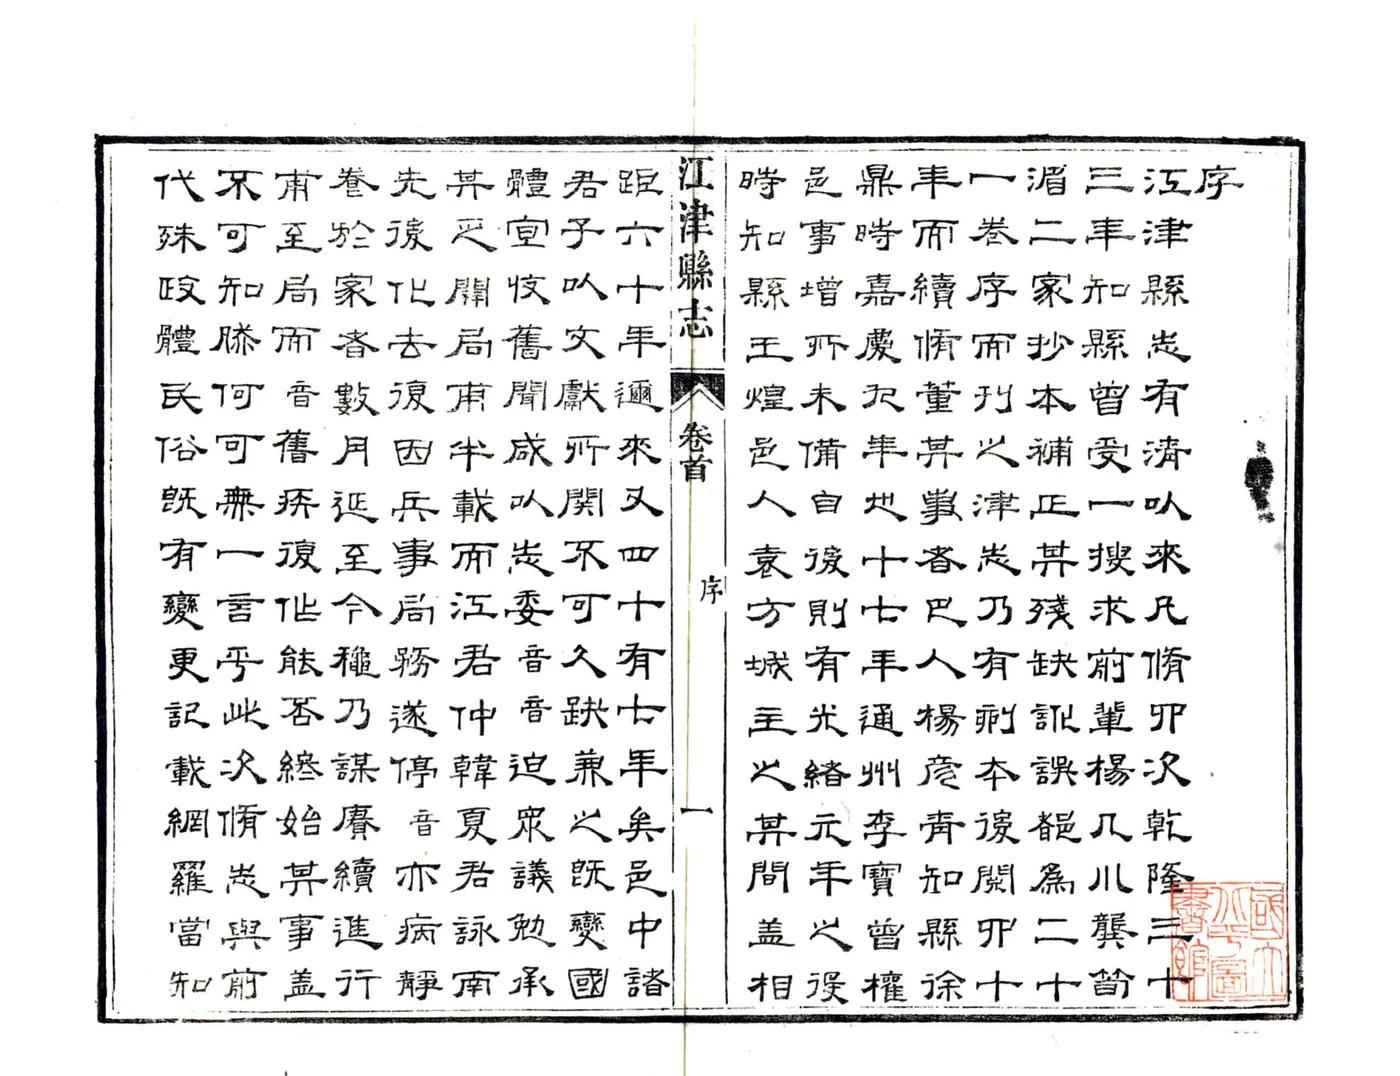 序
江津縣志有清以來凡脩四次乾隆三十
三年知縣曾受一搜求前輩楊几川龔笥
湄二家抄本補正其殘缺訛誤都為二十
一卷序而刊之津志乃有刷本後閱四十
年而續脩董其事者巴人楊彥青知縣徐
鼎時嘉慶九年也十七年通州李寶曾權
邑事增所未備自後則有光緒元年之役
時知縣王煌邑人袁方城主之其間蓋相
江津縣志 卷首 序 一
距六十年邇來又四十有七年矣邑中諸
君子以文獻所關不可久缺兼之既變國
體宜收舊聞咸以志委音音迫眾議勉承
其乏開局甫半載而江君仲韓夏君詠南
先後化去復因兵事局務遂停音亦病靜
養於家者數月延至今穐乃謀賡續進行
甫至局而音舊疾復作能否終始其事蓋
不可知何可無一言乎此次脩志與前
代殊政體民俗既有變更記載網羅當知
國立北平圖書館